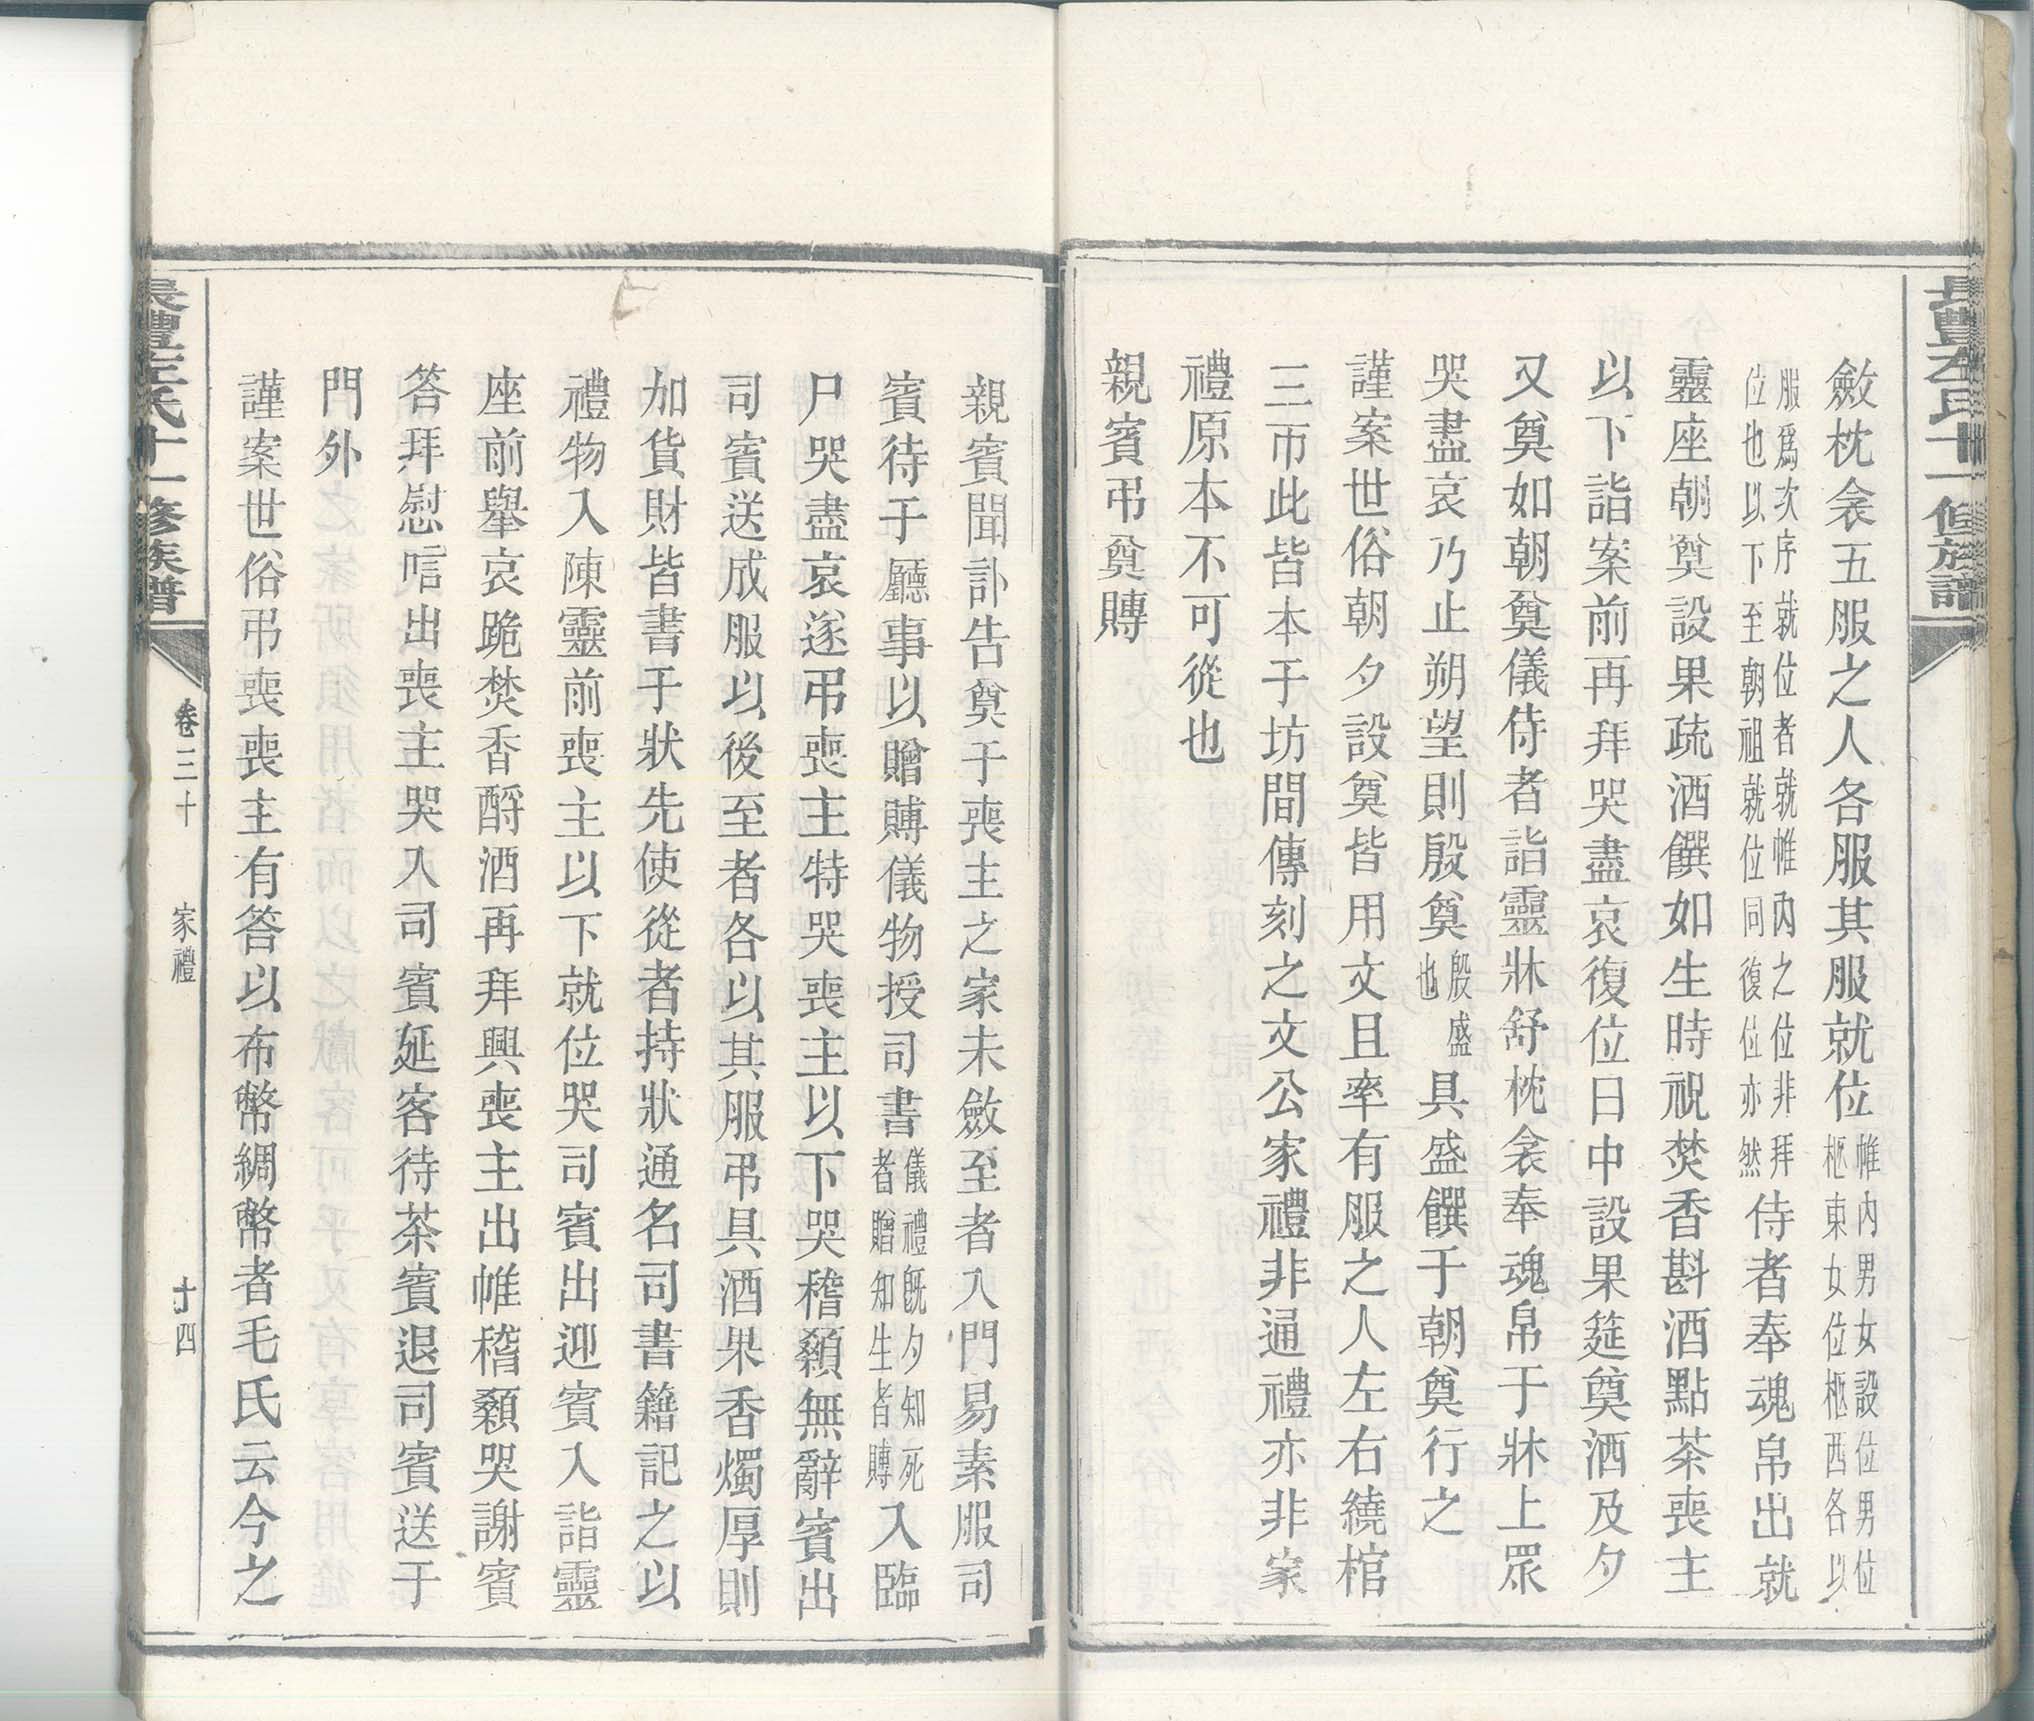 斂枕衾五服之人各服其服就位帷內男女設位男位柩東女位柩西各以
服爲次序就位者就帷內之位非拜位也以下至朝祖就位同復位亦然侍者奉魂帛出就
靈座朝奠設果疏酒饌如生時祝焚香斟酒點茶喪主
以下詣案前再拜哭盡哀復位日中設果筵奠酒及夕
又奠如朝奠儀侍者詣靈牀舒枕衾奉魂帛于牀上眾
哭盡哀乃止朔望則殷奠殷盛也具盛饌于朝奠行之
謹案世俗朝夕設奠皆用文且率有服之人左右繞棺
三帀此皆本于坊間傳刻之文公家禮非通禮亦非家
禮原本不可從也
親賓弔奠賻
親賓聞訃告奠于喪主之家未斂至者入門易素服司
賓待于廳事以贈賻儀物授司書儀禮既夕知死者贈知生者賻入臨
尸哭盡哀遂弔喪主特哭喪主以下哭稽顙無辭賓出
司賓送成服以後至者各以其服弔具酒果香燭厚則
加貨財皆書于狀先使從者持狀通名司書籍記之以
禮物入陳靈前喪主以下就位哭司賓出迎賓入詣靈
座前舉哀跪焚香酹酒再拜興喪主出帷稽顙哭謝賓
答拜慰唁出喪主哭入司賓延客待茶賓退司賓送于
門外
謹案世俗弔喪喪主有答以布幣綢幣者毛氏云今之
長豐左氏十一修族譜
卷三十
家禮
十四